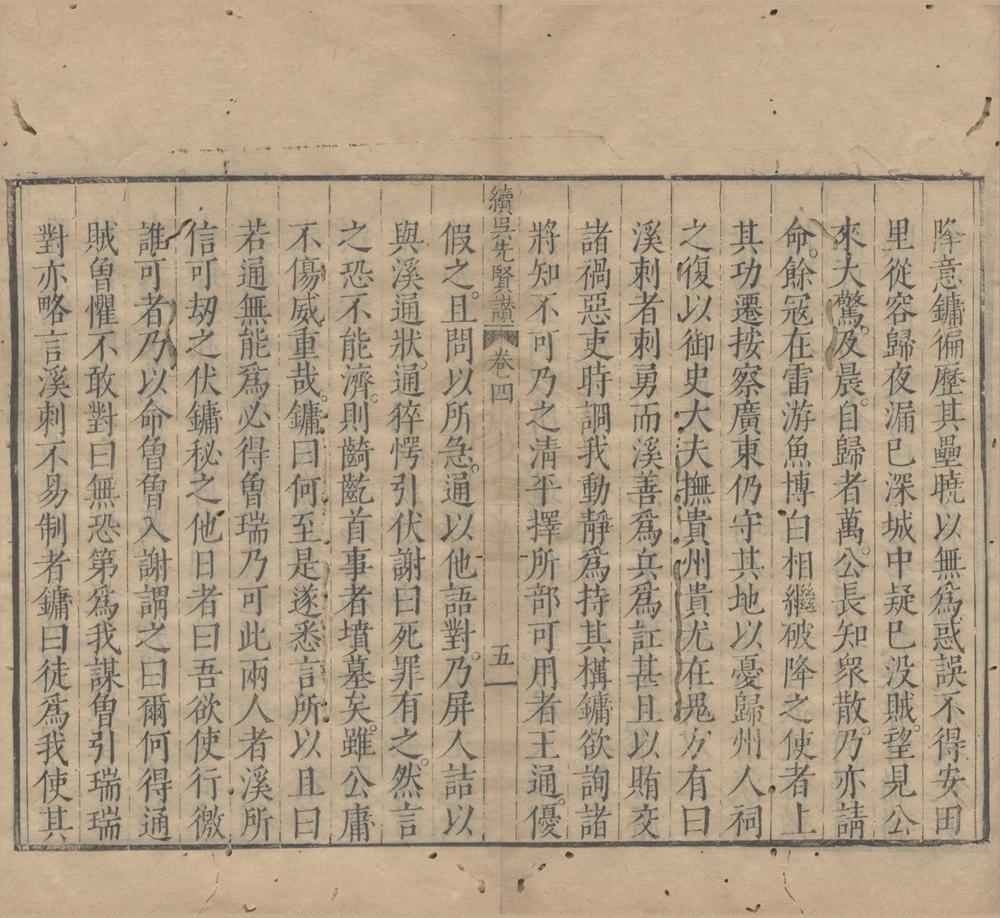 降意鏞徧歷其壘曉以無爲惑誤不得安田
里從容歸夜漏巳深城中疑巳没賊望見公
來大驚及晨自歸者萬公長知衆散乃亦請
命餘冦在雷游魚博白相繼破降之使者上
其功遷按察廣東仍守其地以憂歸州人祠
之復以御史大夫撫貴州貴尤在戡力有曰
溪刺者刺勇而溪善爲兵爲訌甚且以賄交
諸禍惡吏時詗我動靜爲持其構鏞欲詢諸
將知不可乃之清平擇所部可用者王通優
續吳先賢讃
卷四
五
假之且問以所急通以他語對乃屏人詰以
與溪通狀通猝愕引伏謝曰死罪有之然言
之恐不能濟則齮齕首事者墳墓矣雖公庸
不傷威重哉鏞曰何至是遂悉言所以且曰
若通無能爲必得魯瑞乃可此兩人者溪所
信可刼之伏鏞秘之他日者曰吾欲使行徼
誰可者乃以命魯魯入謝謂之曰爾何得通
賊魯懼不敢對曰無恐第爲我謀魯引瑞瑞
對亦略言溪刺不易制者鏞曰徒爲我使其